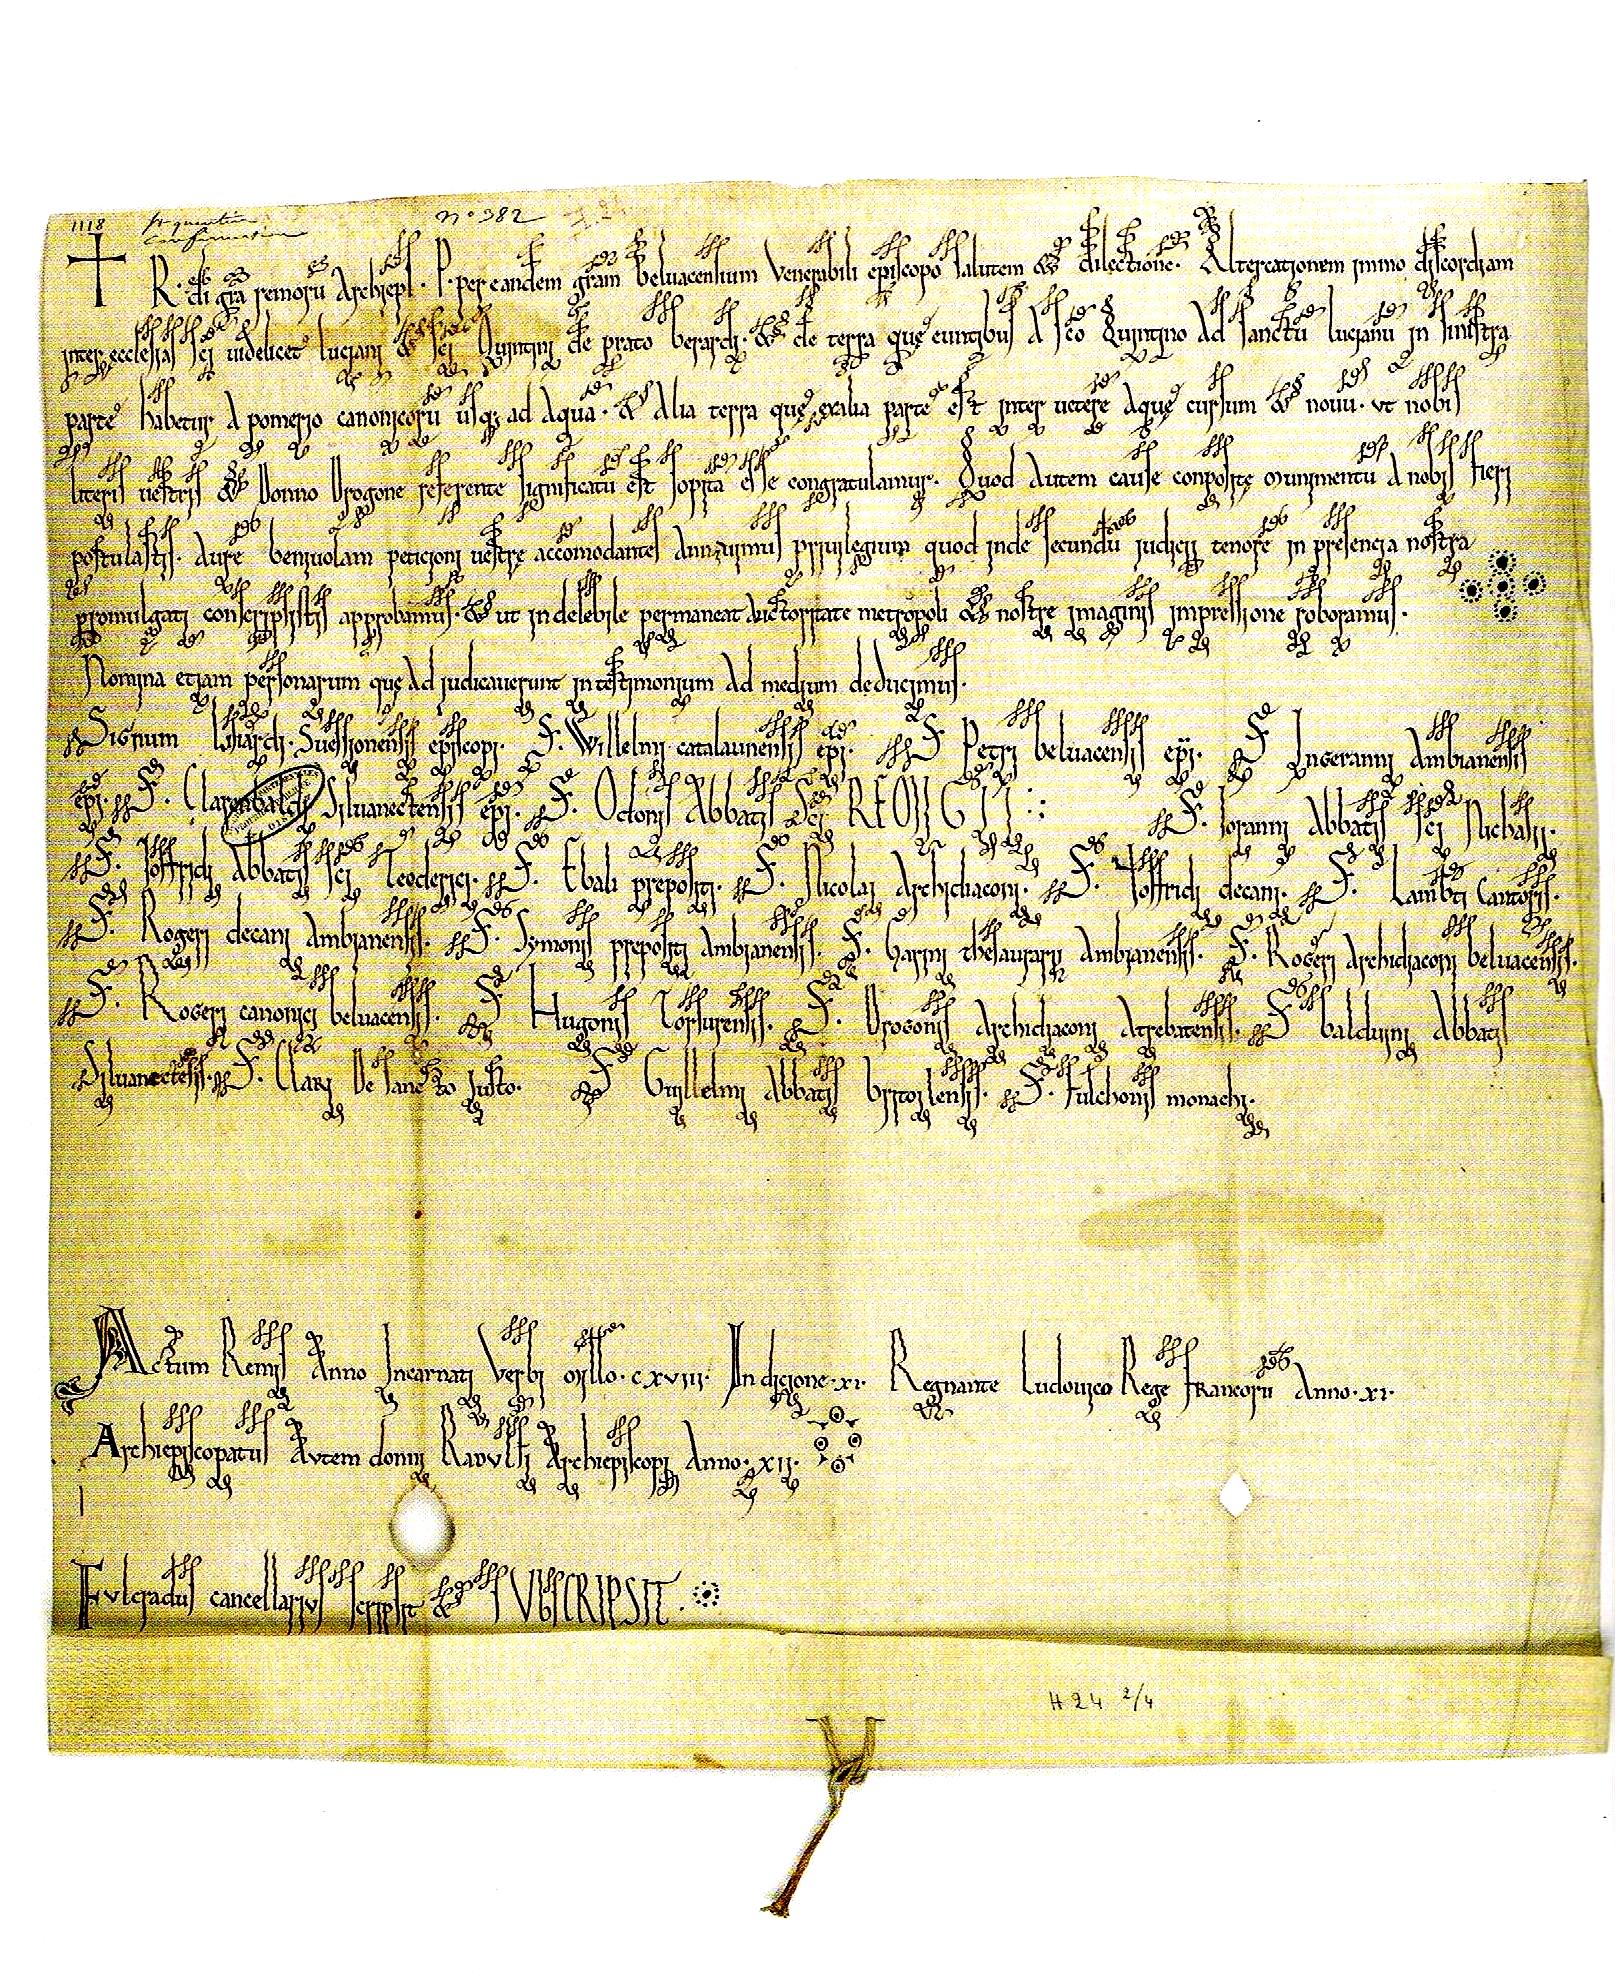 1118 St quentin n° 382
Confirmation
R. di gra remorū Archiepſ. P. per eandem gram belvacensium Venerabili episcopo salutem & dilectione. Altercationem immo discordiam
inter ecclesias sci videlicet luciani & sci Quintini de prato berardi. & de terra quę euntibus A sco Quintino Ad sanctū lucianū in sinistra
parte habetur A pomerio canonicorū usq; ad Aqua. & Alia terra quę ex alia parte est inter vetere Aquę cursum & novū. ut nobis
literis vestris & Donno Drogone referente significatū est sopita esse congratulamur. Quod Autem cause conposite munimentū A nobis fieri
postulastis. Aure benivolam peticioni vestrę accomodantes Annuimus privilegium quod inde secundū judicii tenore in presencia nostra
promulgati conscripsistis approbamus. & ut indelebile permaneat Auctoritate metropoli & nostre imaginis impressione roboramus.
Nomina etiam personarum quę Ad judicaverunt in testimonium Ad medium deducimus.
Signum lisiardi. Suessionensis episcopi. S. Willelmi catalaunensis epi. S. Petri belvacensis epi. S. Ingeranni Ambianensis
epi. S. Clarenbaldi Silvanectensis epi. S. Odonis Abbatis Sci REMIGII. S. Joranni Abbatis sci Nichasii.
S. Joffridi Abbatis sci Teoderici. S. Ebali prepositi. S. Nicolai Archidiaconi. S. Joffridi decani. S. Lamb̄ti Cantoris.
S. Rogeri decani Ambianensis. S. Symonis prepositi Ambianensis. S. Garini thesaurarii Ambianensis. S. Rogeri Archidiaconi belvacensis.
S. Rogeri canonici belvacensis. S. Hugonis S. Drogonis Archidiaconi Atrebatensis. S. balduini Abbatis
Silvanectēsis. S. Clari De sancto Justo. S. Guillelmi Abbatis britoilensis. S. Fulchonis monachi.
Actum Remis Anno Incarnati Verbi millo. c xviii. Indicione. xi. Regnante Ludovico Rege francorū Anno. xi.
Archiepiscopatus Autem domni Radulfi Archiepiscopi Anno. xii.
Fulcradus cancellarius scripsit & SUBSCRIPSIT.
H 24 2/4